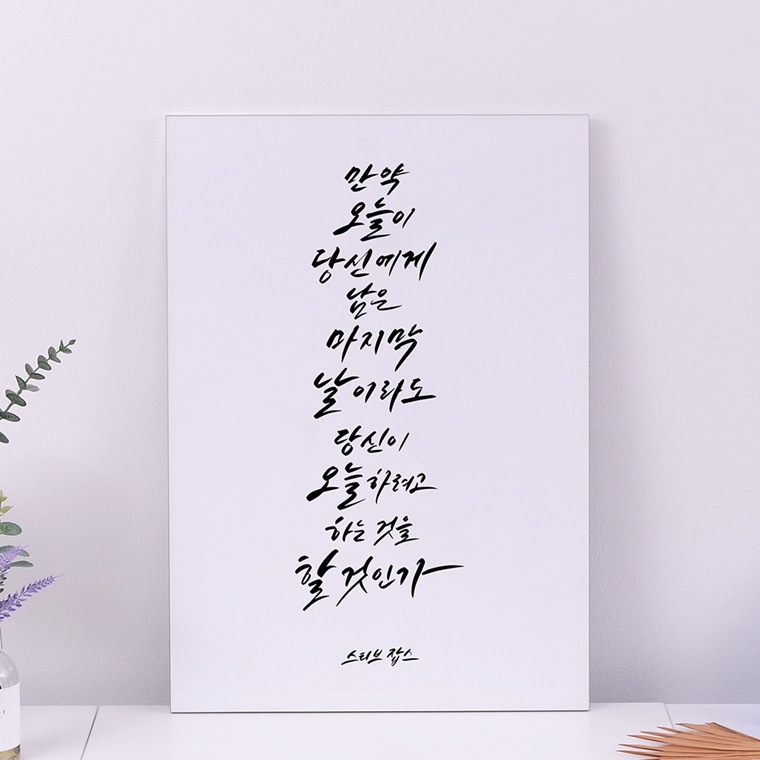 만약
오늘이
당신에게
남은
마지막
날이라도
당신이
오늘하려고
하는 것을
할 것인가
스티브 잡스